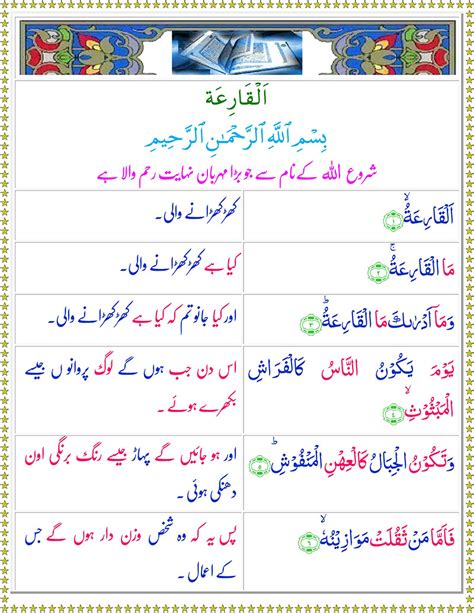 اَلْقَارِعَة
بِسْمِ اللّٰهِ الرَّحْمٰنِ الرَّحِيْمِ
شروع اللہ کے نام سے جو بڑا مہربان نہایت رحم والا ہے
اَلْقَارِعَةُۙ ۱
کھڑکھڑانے والی۔
مَا الْقَارِعَةُۚ ۲
کیا ہے کھڑکھڑانے والی۔
وَمَاۤ اَدْرٰىكَ مَا الْقَارِعَةُؕ ۳
اور کیا جانو تم کہ کیا ہے کھڑکھڑانے والی۔
يَوْمَ يَكُوْنُ النَّاسُ كَالْفَرَاشِ
الْمَبْثُوْثِۙ ۴
اس دن جب ہوں گے لوگ پروانو ں جیسے
بکھرے ہوئے۔
وَتَكُوْنُ الْجِبَالُ كَالْعِهْنِ الْمَنْفُوْشِؕ ۵
اور ہو جائیں گے پہاڑ جیسے رنگ برنگی اون
دھنکی ہوئی۔
فَاَمَّا مَنْ ثَقُلَتْ مَوَازِيْنُهٗۙ ۶
پس یہ کہ وہ شخص وزن دار ہوں گے جس
کے اعمال۔